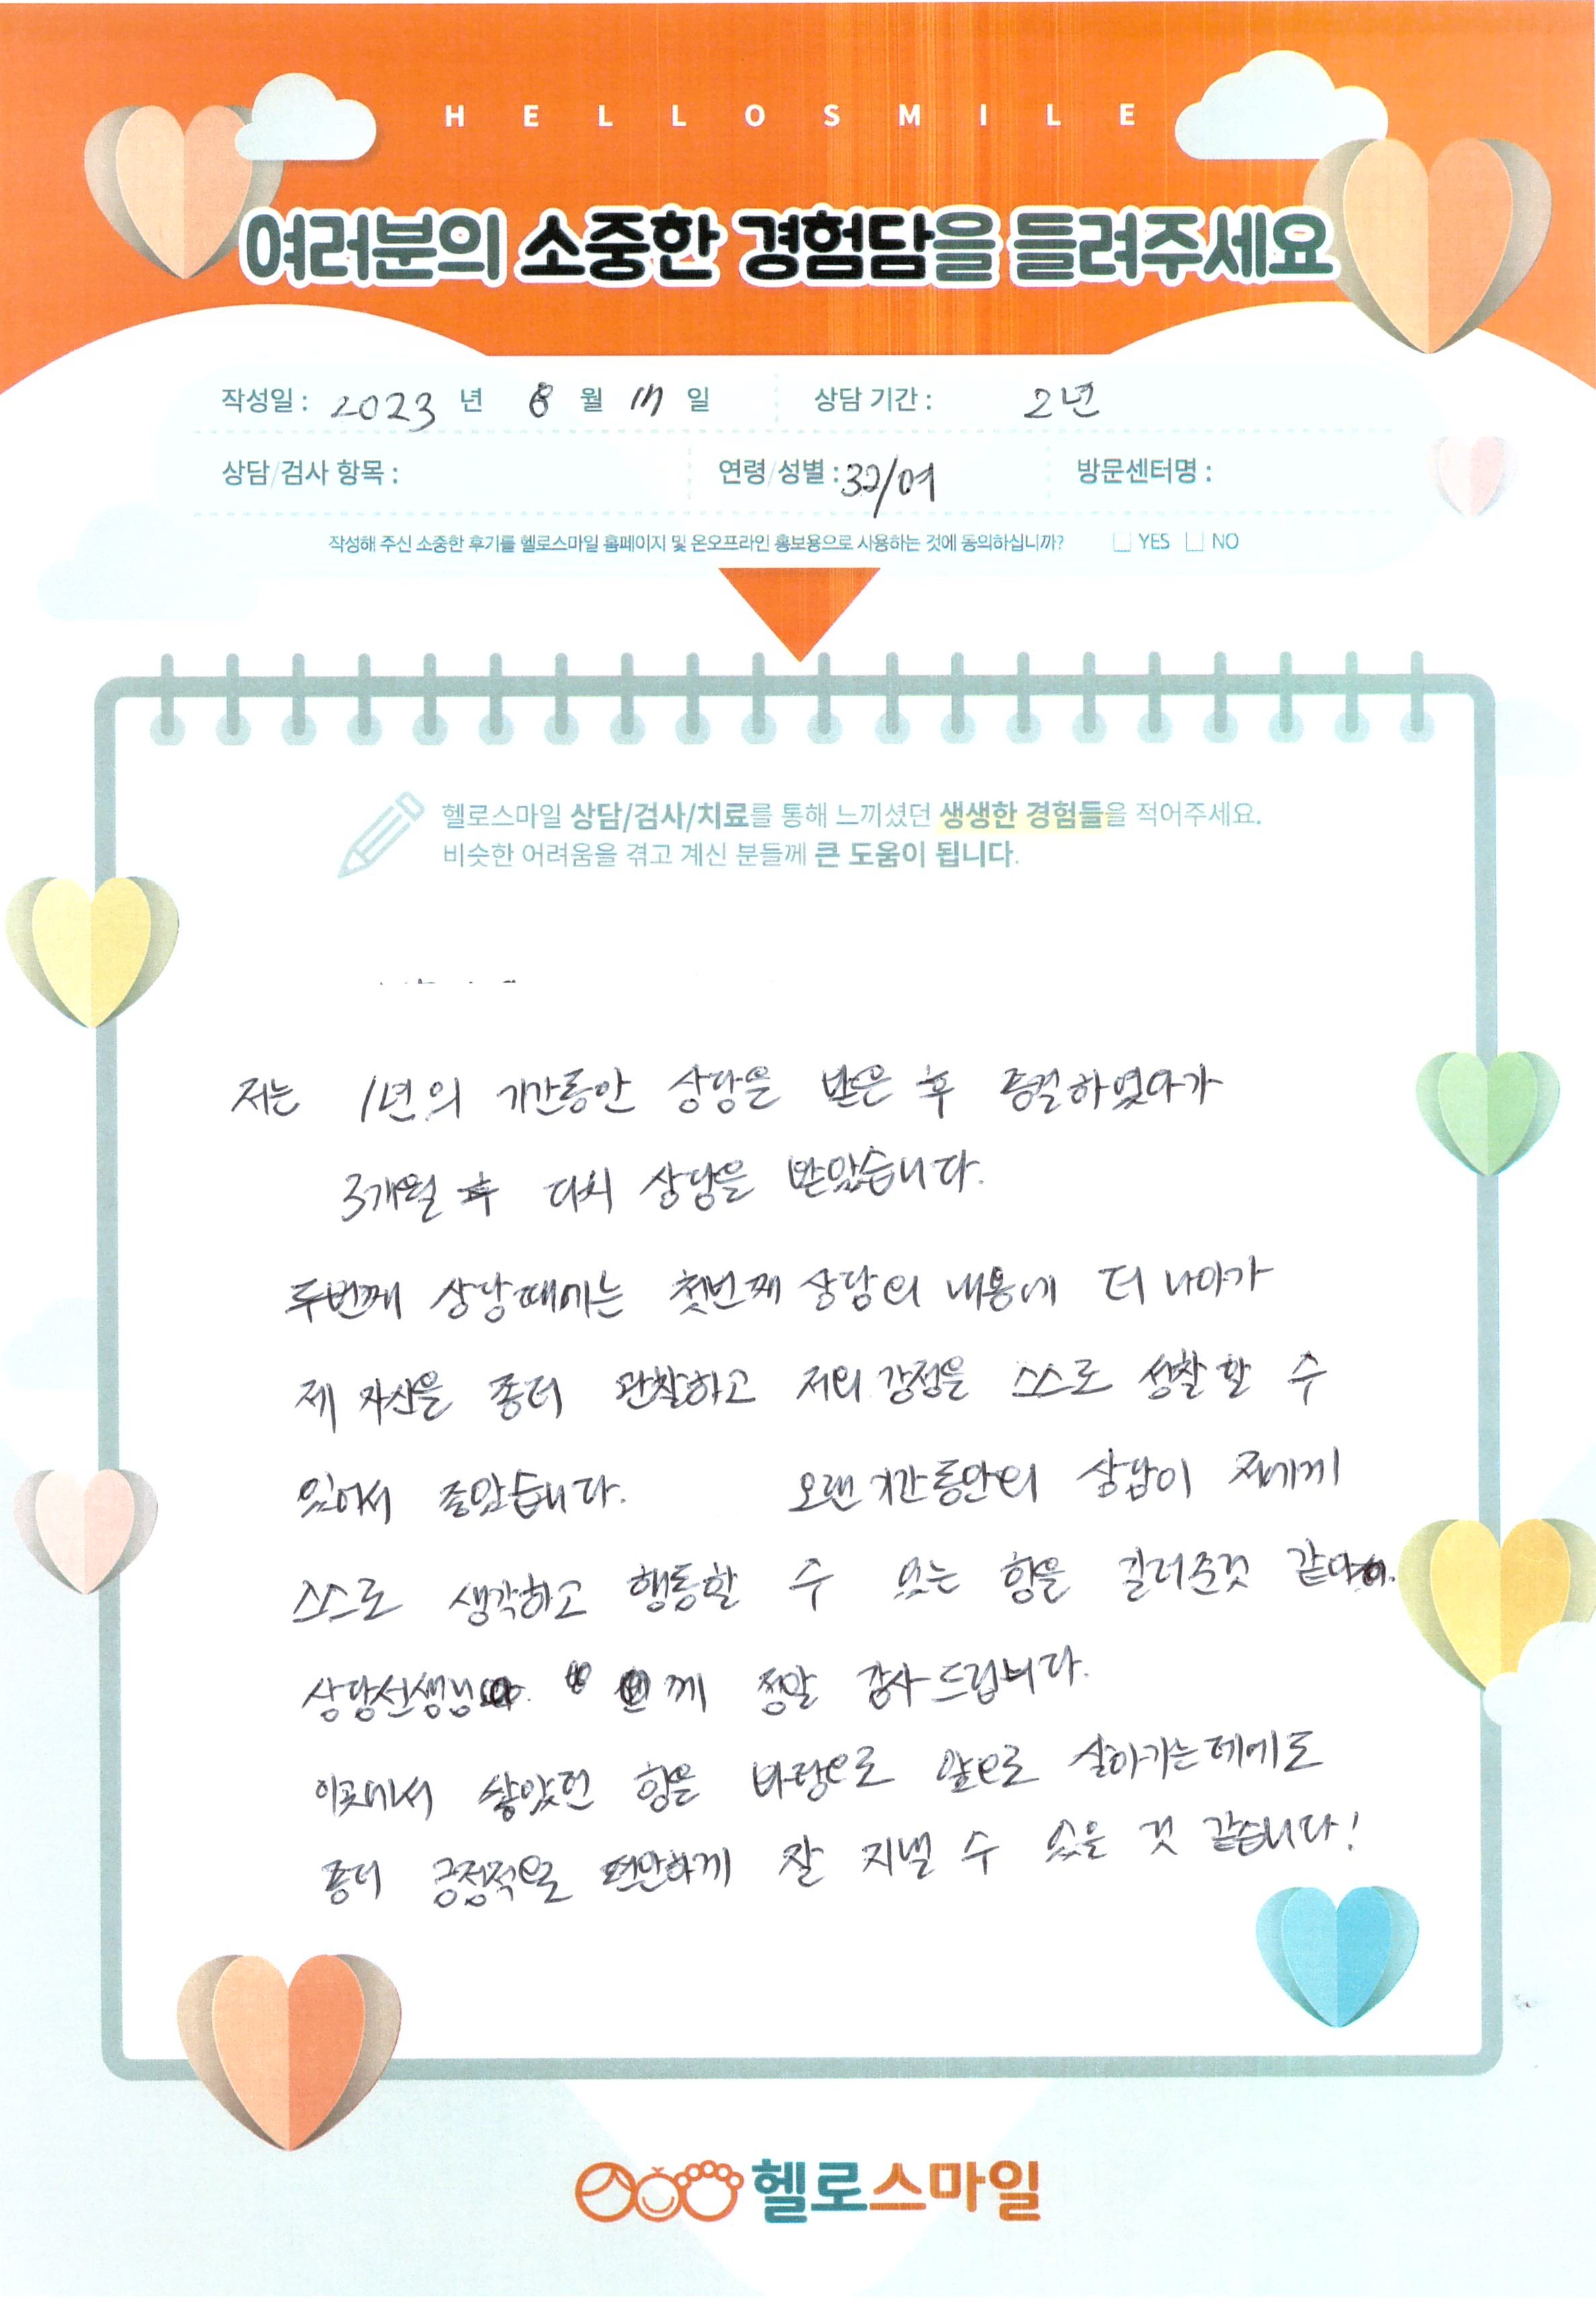 HELLOSMILE
여러분의 소중한 경험담을 들려주세요
작성일 : 2023 년 8 월 17 일 상담 기간 : 2년
상담/검사 항목 : 연령/성별 : 32/여 방문센터명 :
작성해 주신 소중한 후기를 헬로스마일 홈페이지 및 온오프라인 홍보용으로 사용하는 것에 동의하십니까? YES NO
헬로스마일 상담/검사/치료를 통해 느끼셨던 생생한 경험들을 적어주세요.
비슷한 어려움을 겪고 계신 분들께 큰 도움이 됩니다.
저는 1년의 기간동안 상담을 받은 후 종결하였다가
3개월 후 다시 상담을 받았습니다.
두번째 상담때에는 첫번째 상담의 내용에 더 나아가
제 자신을 좀더 관찰하고 저의 감정을 스스로 성찰할 수
있어서 좋았습니다. 오랜 기간동안의 상담이 저에게
스스로 생각하고 행동할 수 있는 힘을 길러준것 같아
상담선생님 께 정말 감사드립니다.
이곳에서 쌓았던 힘을 바탕으로 앞으로 살아가는데에도
좀더 긍정적으로 편안하게 잘 지낼 수 있을 것 같습니다!
헬로스마일